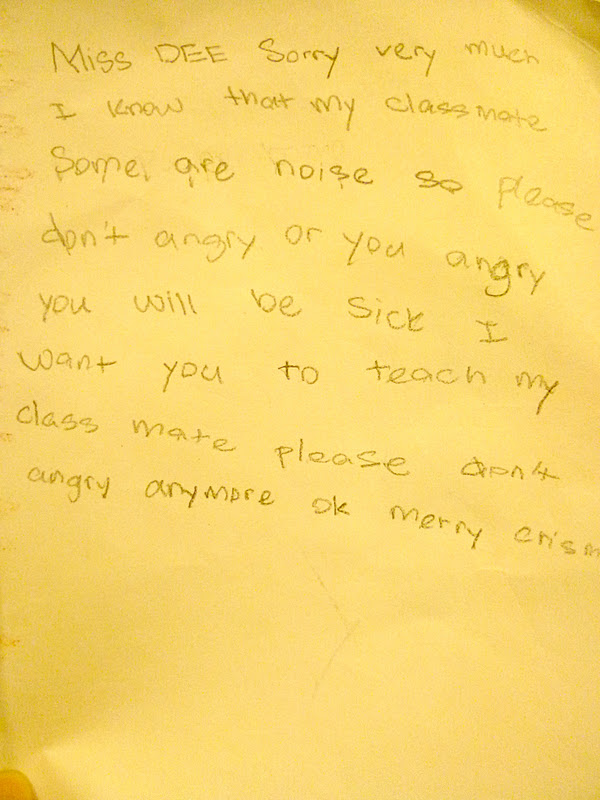 Miss DEE Sorry very much
I know that my classmate
Some, are noise so please
don't angry or you angry
you will be sick I
want you to teach my
class mate please don't
angry anymore ok merry crism